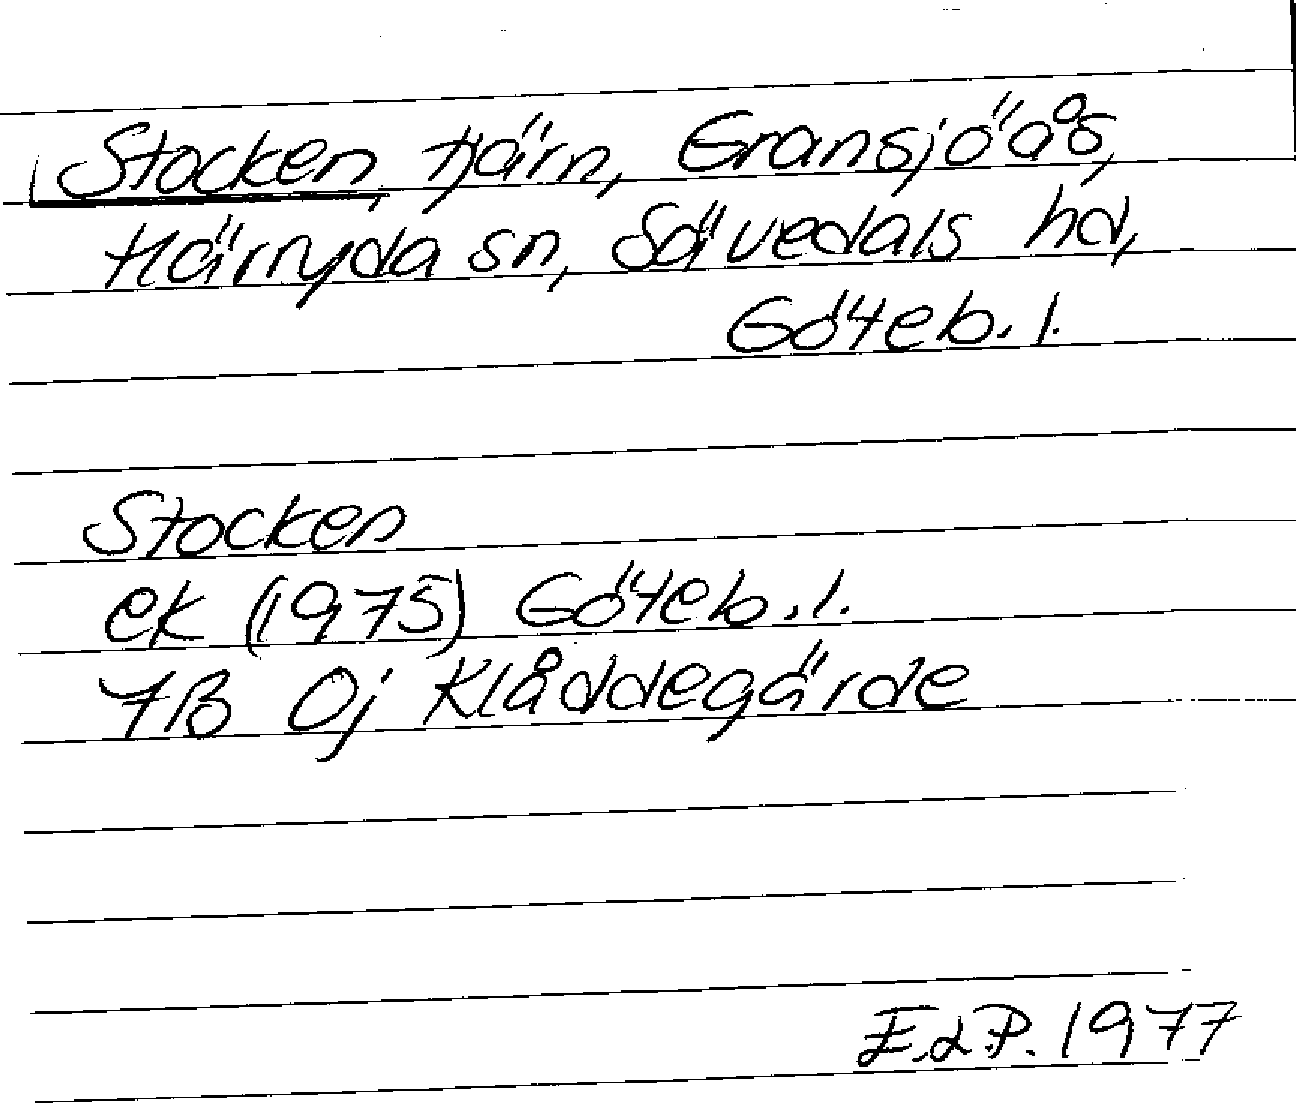 Stocken, tjärn, Gransjöås,
Härryda sn, Sävedals hd,
Göteb. l.
Stocken
ek (1975) Göteb. l.
7B 0j Klåddegärde
E.L.P. 1977